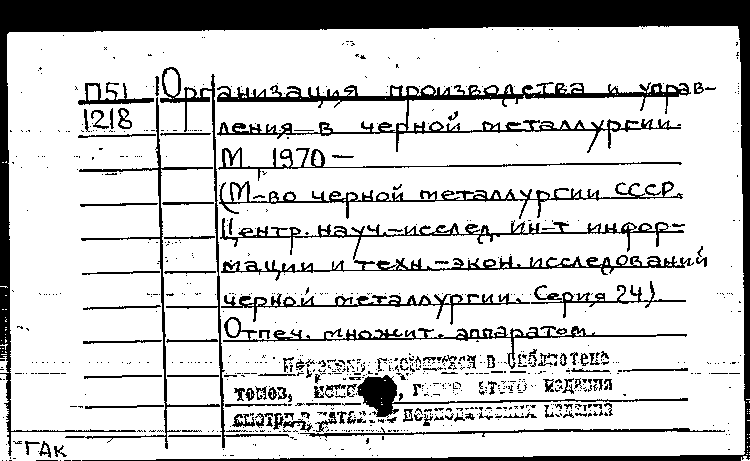 П51 Организация производства и управ-
1218 ления в черной металлургии.
М. 1970 —
(М-во черной металлургии СССР.
Центр. науч.-исслед. ин-т инфор-
мации и техн.-экон. исследований
черной металлургии. Серия 24).
Отпеч. множит. аппаратом.
Перечень имеющихся в библиотеке
томов, этого издания
смотри в каталоге периодических изданий
ГАК